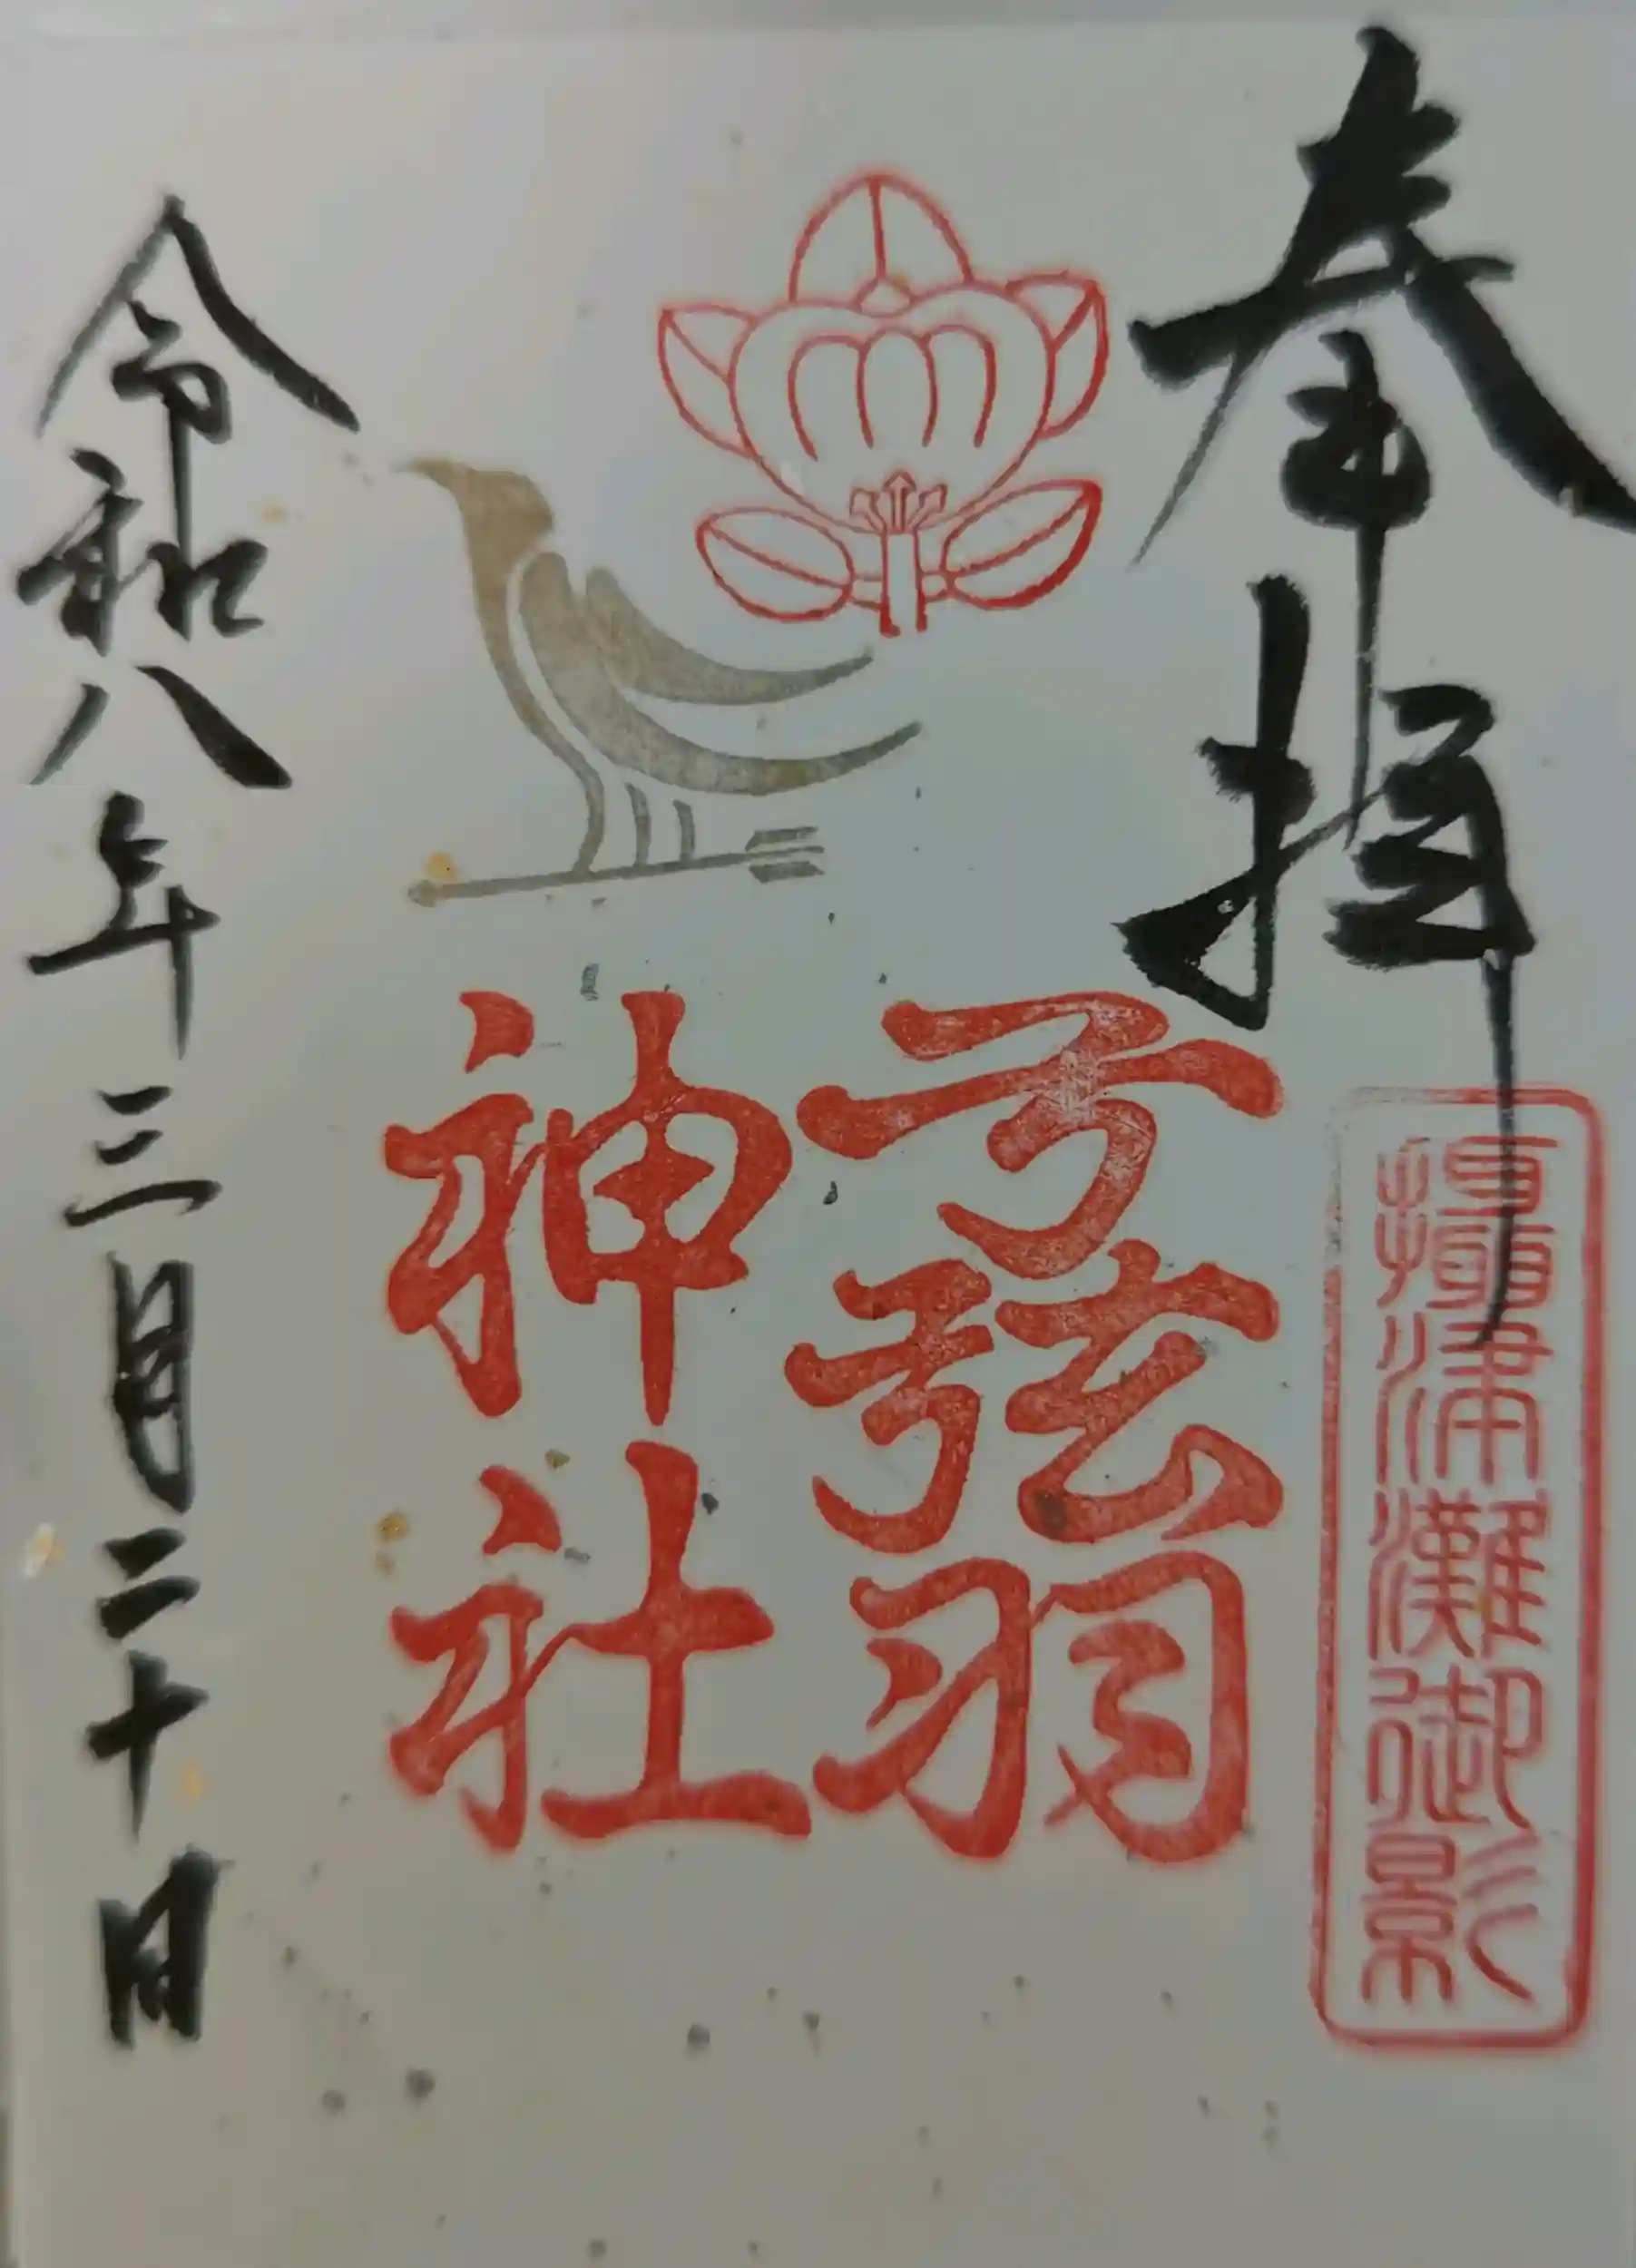 奉拝
摂津灘御影
弓弦羽
神社
令和八年三月二十日